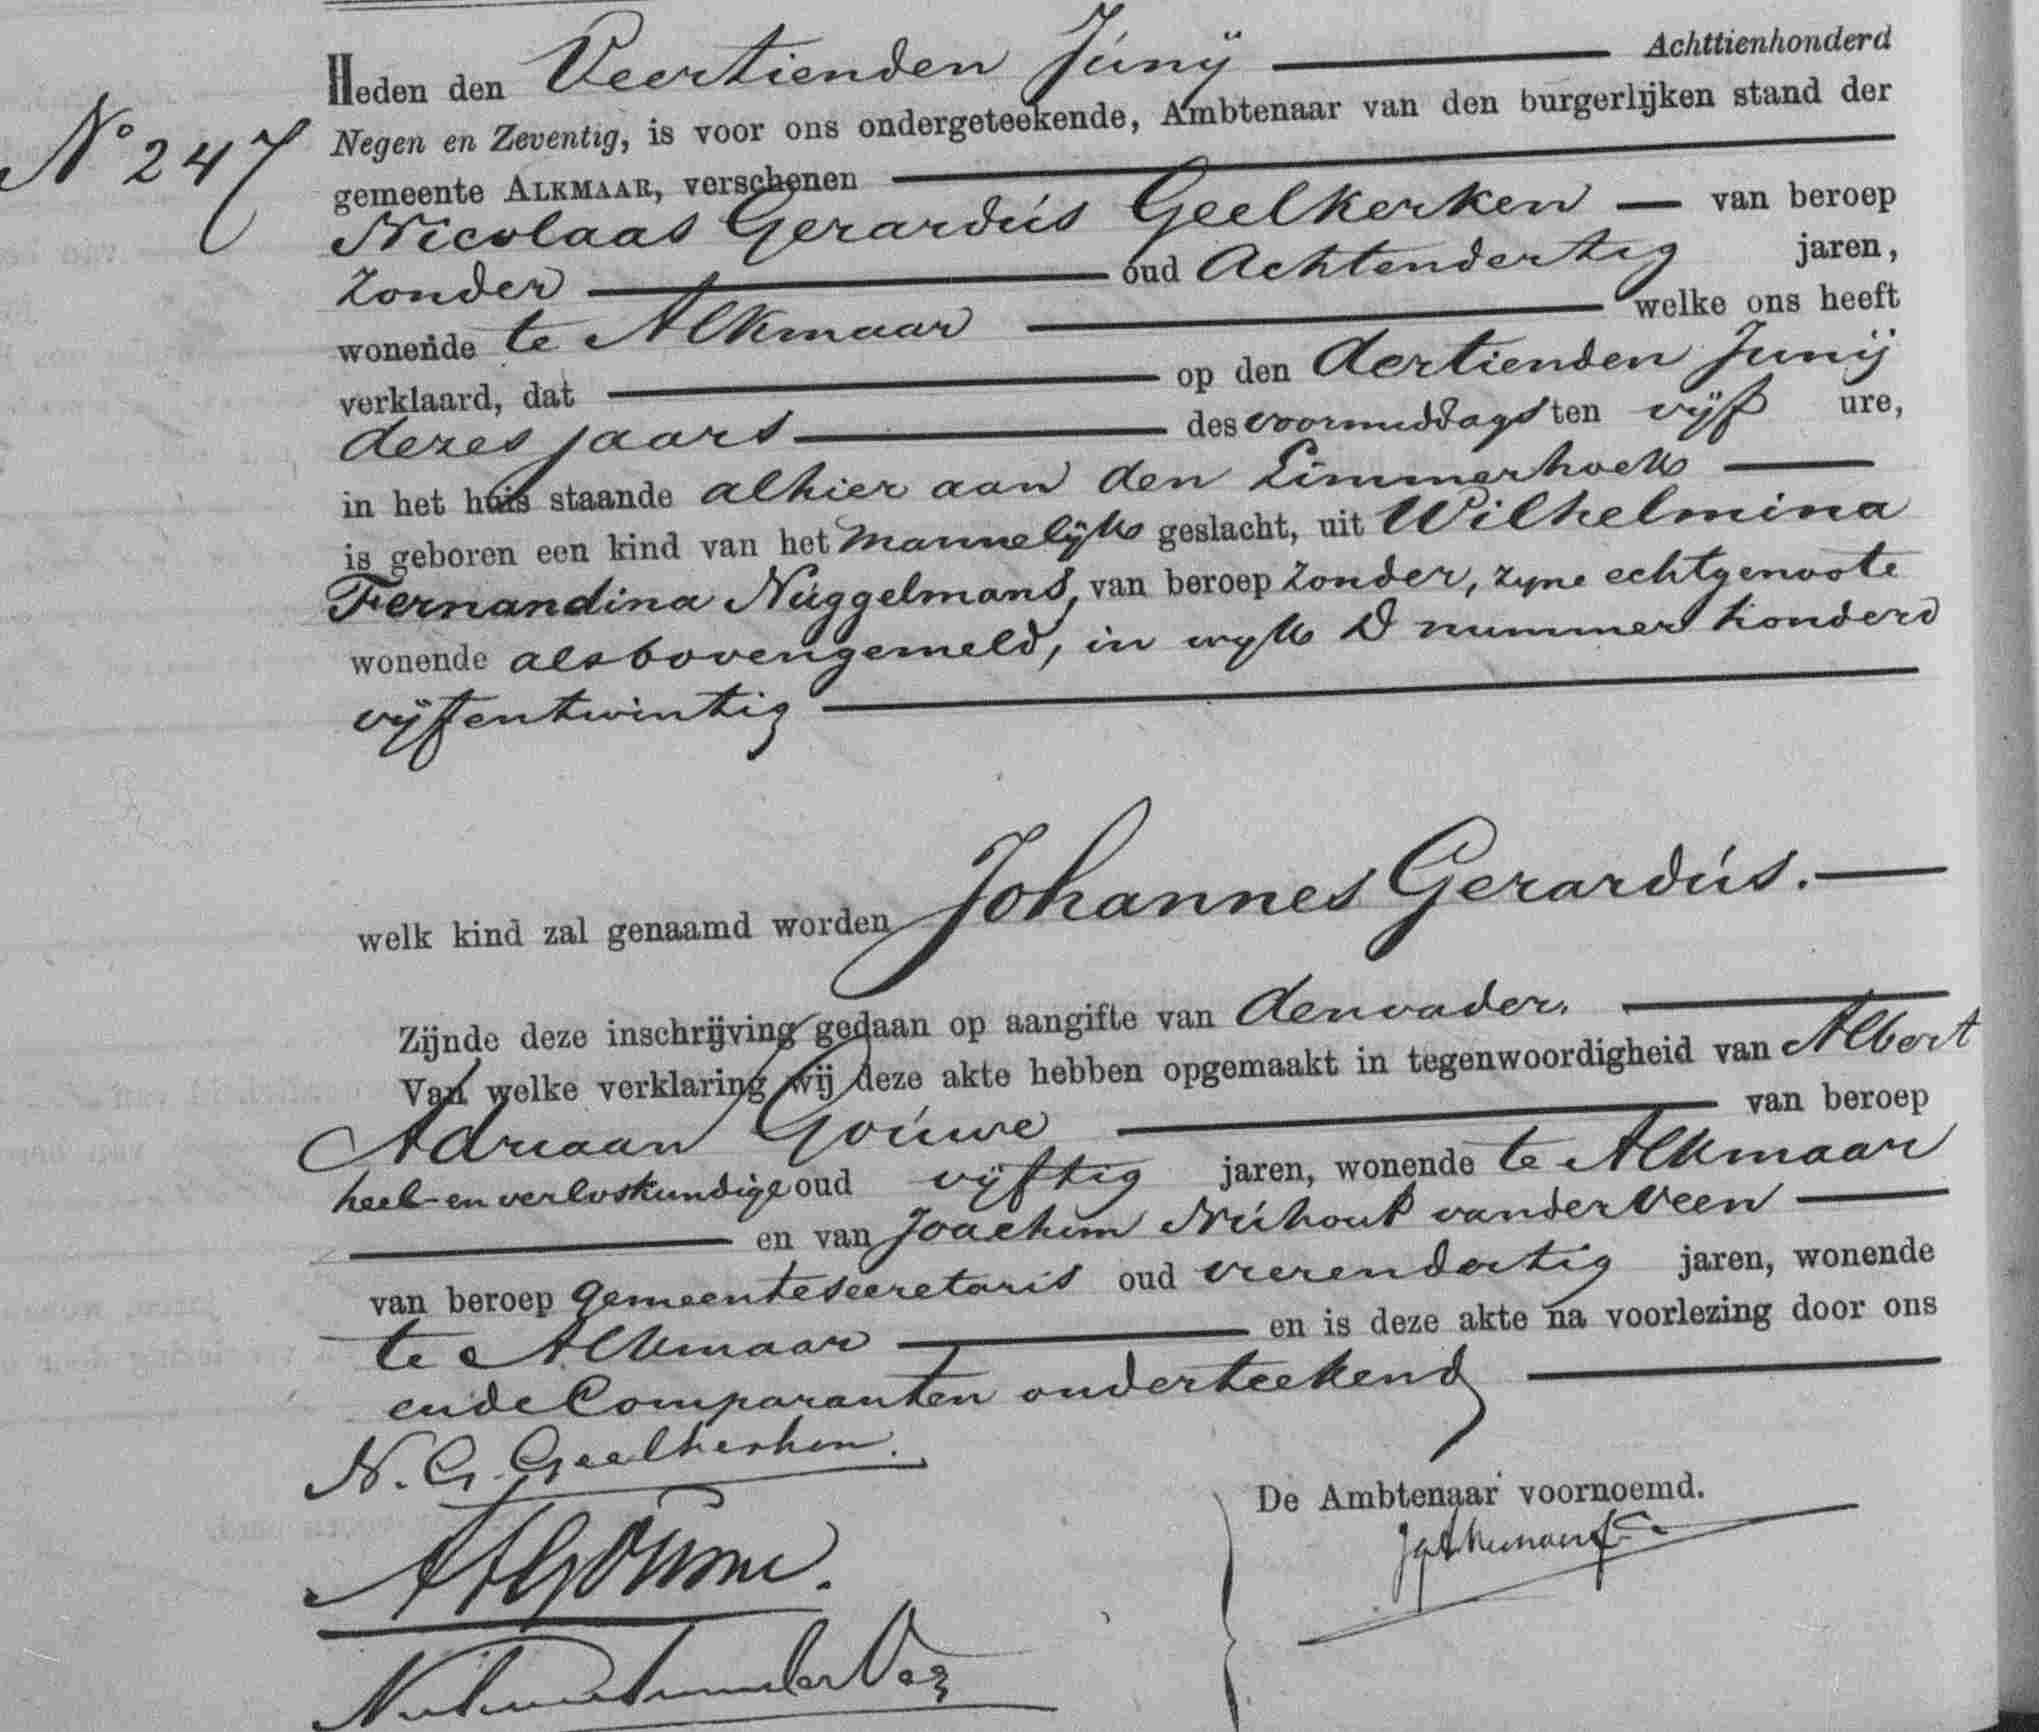 Heden den Veertienden Junij Achttienhonderd
No 247
Negen en Zeventig, is voor ons ondergeteekende, Ambtenaar van den burgerlijken stand der
gemeente ALKMAAR, verschenen
Nicolaas Gerardus Geelkerken van beroep
Zonder oud Achtendertig jaren,
wonende te Alkmaar welke ons heeft
verklaard, dat op den dertienden Junij
dezes jaars des voormiddags ten vijf ure,
in het huis staande alhier aan den Limmerhoek
is geboren een kind van het mannelijk geslacht, uit Wilhelmina
Fernandina Nuggelmans, van beroep Zonder, zyne echtgenoote
wonende als bovengemeld, in wyk D nummer honderd
vijfentwintig
welk kind zal genaamd worden Johannes Gerardus.
Zijnde deze inschrijving gedaan op aangifte van den vader.
Van welke verklaring wij deze akte hebben opgemaakt in tegenwoordigheid van Albert
Adriaan Gouwe van beroep
heel- en verloskundige oud vijftig jaren, wonende te Alkmaar
en van Joachim Nuhout van der Veen
van beroep gemeentesecretaris oud vierendertig jaren, wonende
te Alkmaar en is deze akte na voorlezing door ons
en de Comparanten onderteekend
N. G. Geelkerken.
De Ambtenaar voornoemd.
AAGouwe.
Nuhout van der Veen